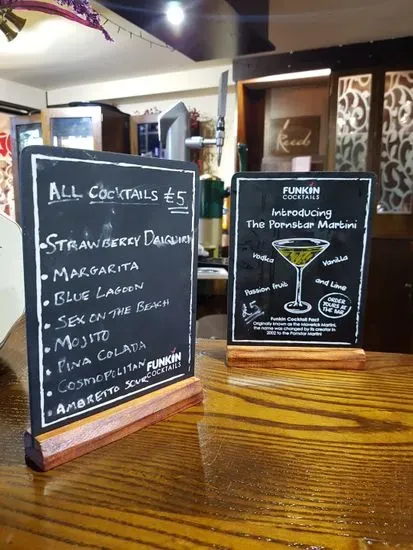 ALL COCKTAILS £5
• STRAWBERRY DAIQUIRI
• MARGARITA
• BLUE LAGOON
• SEX ON THE BEACH
• MOJITO
• PINA COLADA
• COSMOPOLITAN
• AMARETTO SOUR
FUNKIN
COCKTAILS
FUNKIN
COCKTAILS
Introducing
The Pornstar Martini
Vodka
Vanilla
Passion fruit
and Lime
£5
ORDER
YOURS AT
THE BAR
Funkin Cocktail Fact
Originally known as the Maverick Martini,
the name was changed by its creator in
2002 to the Pornstar Martini.
Reed